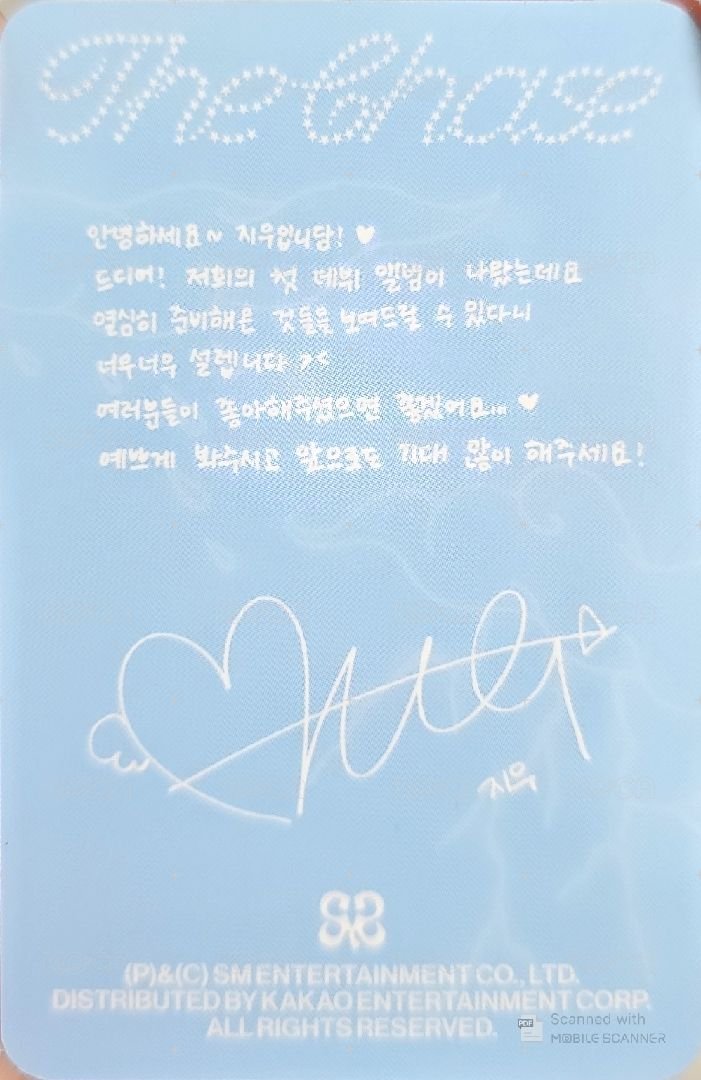 The Chase
안녕하세요~ 지우입니당! ♥
드디어! 저희의 첫 데뷔 앨범이 나왔는데요
열심히 준비해온 것들을 보여드릴 수 있다니
너무너무 설렙니다 ><
여러분들이 좋아해주셨으면 좋겠어요... ♥
예쁘게 봐주시고 앞으로도 기대 많이 해주세요!
지우
(P)&(C) SM ENTERTAINMENT CO., LTD.
DISTRIBUTED BY KAKAO ENTERTAINMENT CORP.
ALL RIGHTS RESERVED.
PDF
Scanned with
MOBILE SCANNER